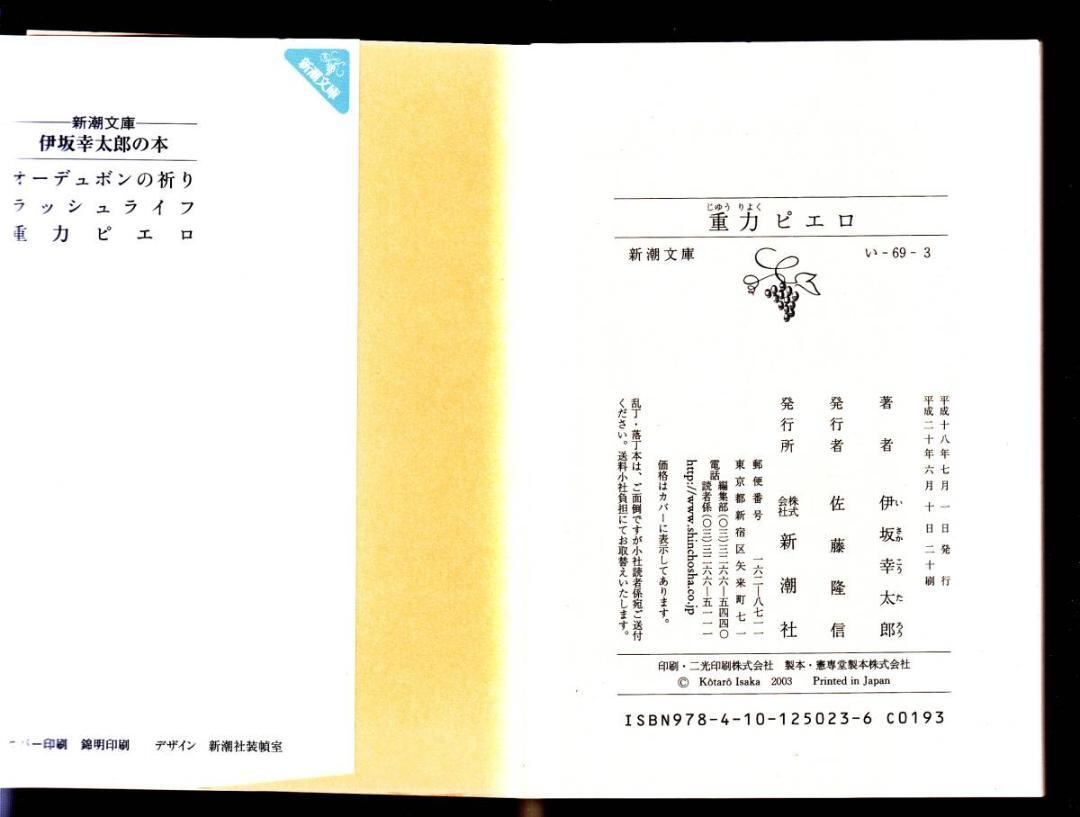 新潮文庫
新潮文庫
伊坂幸太郎の本
オーデュボンの祈り
ラッシュライフ
重力ピエロ
バー印刷 錦明印刷 デザイン 新潮社装幀室
じゅうりよく
重力ピエロ
新潮文庫 い-69-3
平成十八年七月一日発行
平成二十年六月十日二十刷
著者 伊坂幸太郎
いさかこうたろう
発行者 佐藤隆信
発行所 株式会社新潮社
郵便番号 一六二―八七一一
東京都新宿区矢来町七一
電話 編集部(〇三)三二六六―五四四〇
読者係(〇三)三二六六―五一一一
http://www.shinchosha.co.jp
価格はカバーに表示してあります。
乱丁・落丁本は、ご面倒ですが小社読者係宛ご送付
ください。送料小社負担にてお取替えいたします。
印刷・二光印刷株式会社 製本・憲専堂製本株式会社
© Kôtarô Isaka 2003 Printed in Japan
ISBN978-4-10-125023-6 C0193